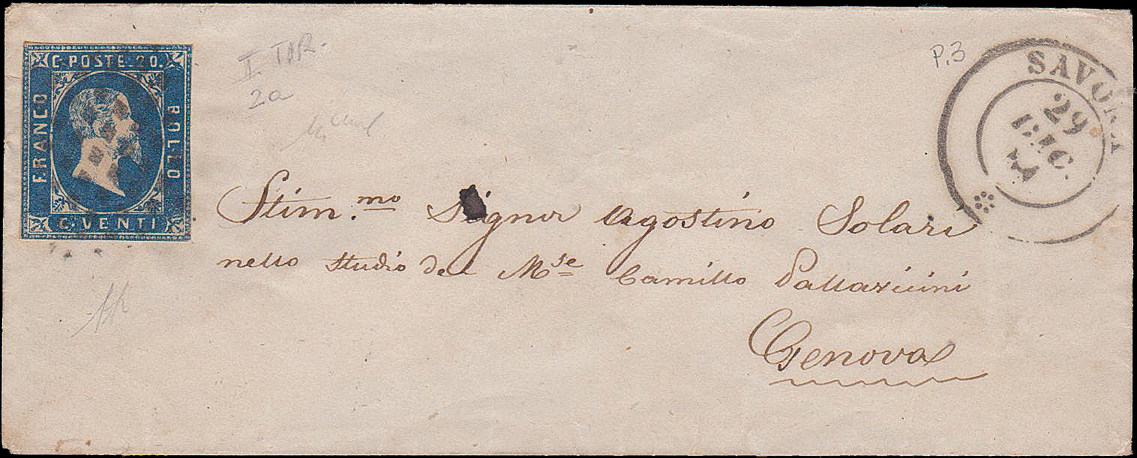 C. POSTE. 20.
FRANCO
BOLLO
C. VENTI
I TIR.
2a
P.3
SAVONA
29
DIC
Stim.mo Signor Agostino Solari
nello Studio del M.se Camillo Pallavicini
Genova